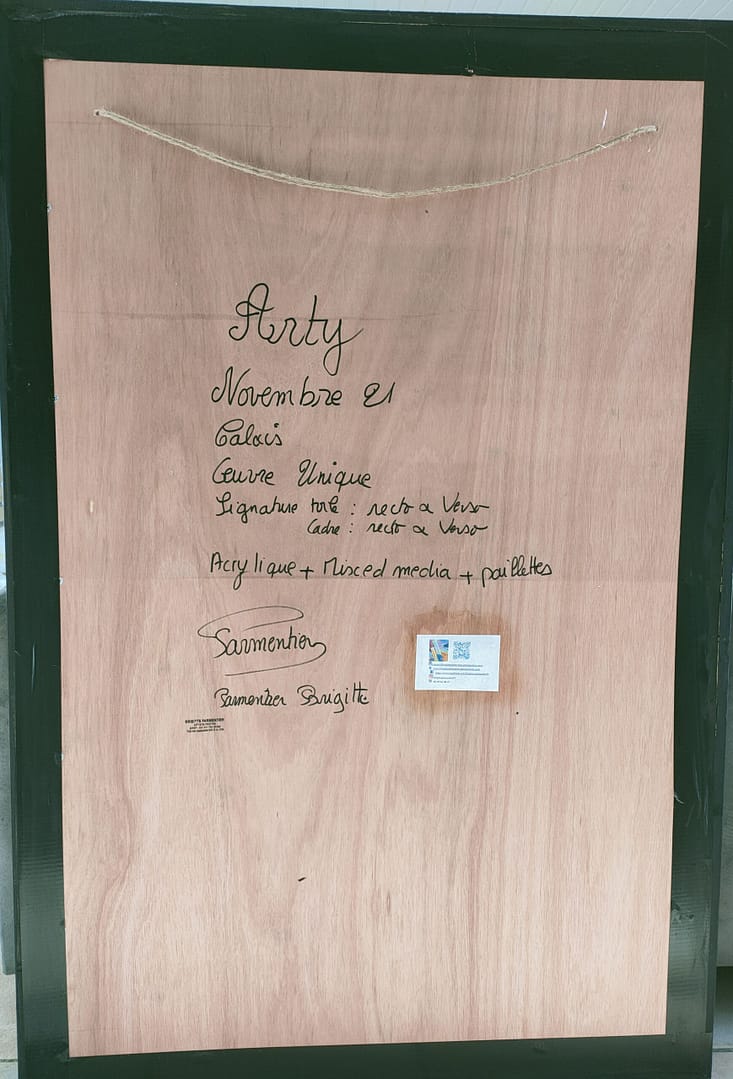 Arty
Novembre 21
Calais
Œuvre Unique
Signature toile : recto & Verso
Cadre : recto & Verso
Acrylique + Mixed media + paillettes
Parmentier
Parmentier Brigitte
BRIGITTE PARMENTIER